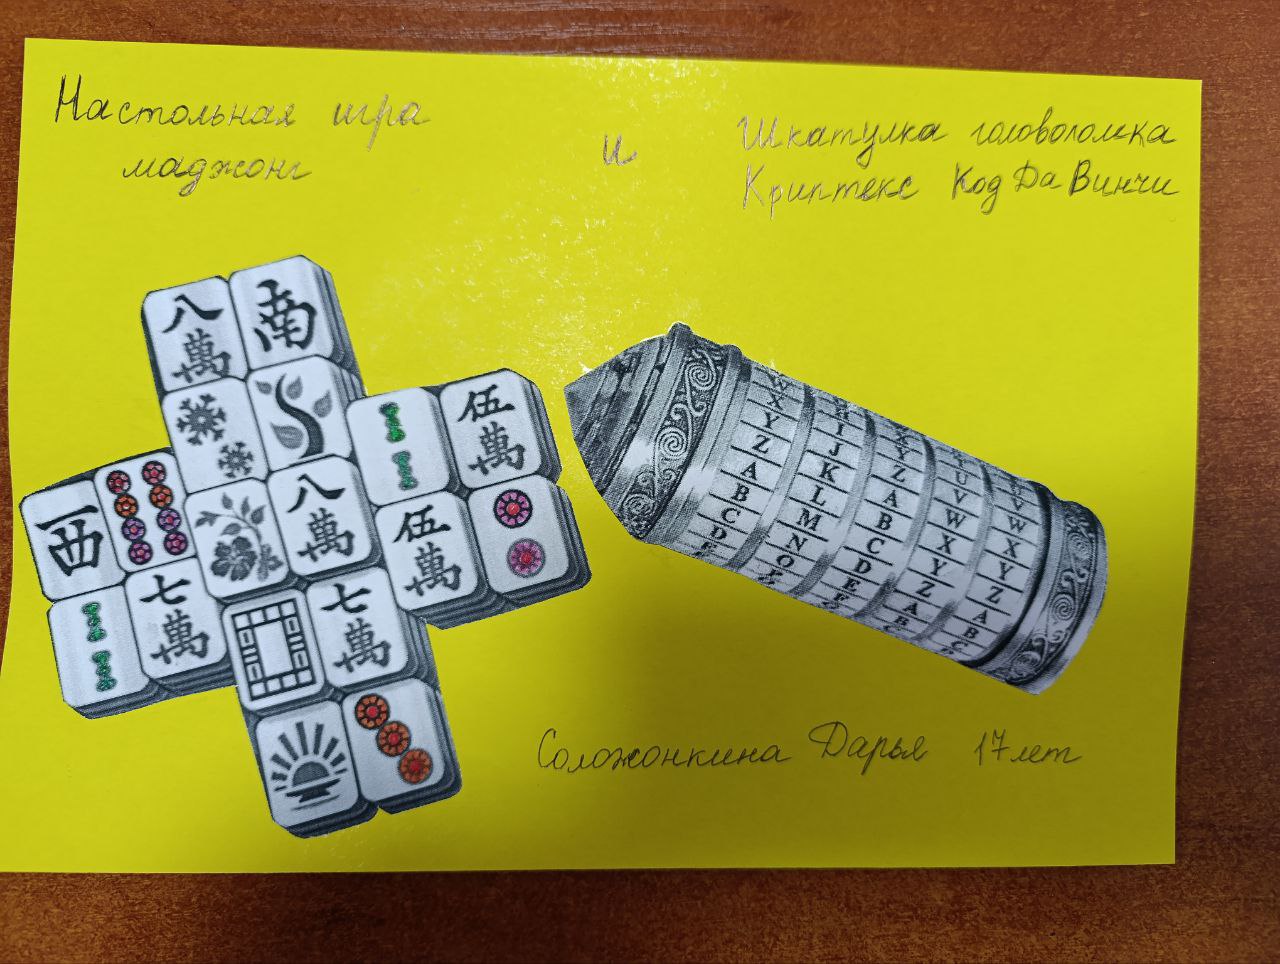 Настольная игра
маджонг
и
Шкатулка головоломка
Криптекс Код Да Винчи
八萬
南
伍萬
西
八萬
伍萬
七萬
七萬
W X Y Z A B C D E
I J K L M N O P
X Y Z A B C D E
T U V W X Y Z A B C
U V W X Y Z A B C
Соложонкина Дарья 17 лет